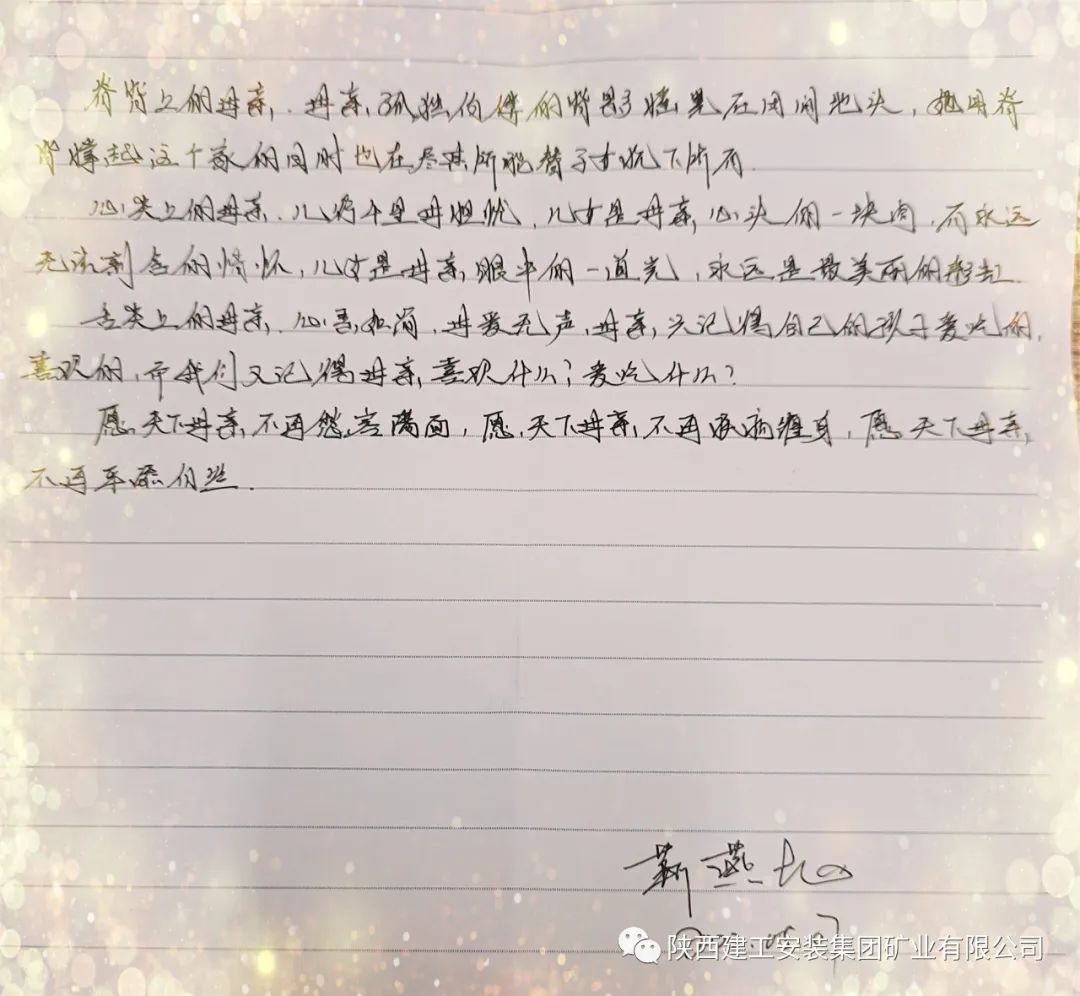 脊背上的母亲，母亲，孤独的背影总是在田间地头，她用脊
背撑起这个家的同时也在尽其所能替子女忧下所有
心尖上的母亲，儿行千里母担忧，儿女是母亲，心头的一块肉，而永远
无法割舍的情怀，儿女是母亲，眼中的一道光，永远是最美丽的彩虹．
舌尖上的母亲，心，母爱无声，母亲，只记得自己的孩子爱吃的，
喜欢的，而我们又记得母亲，喜欢什么？爱吃什么？
愿，天下母亲，不再愁容满面，愿，天下母亲，不再疾病缠身，愿天下母亲，
不再平添白丝．
靳燕
陕西建工安装集团矿业有限公司